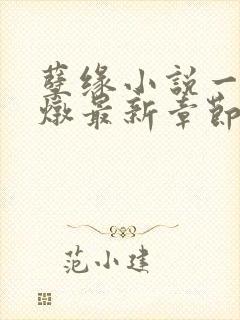 孽缘小说一
燉最新章节
范小建